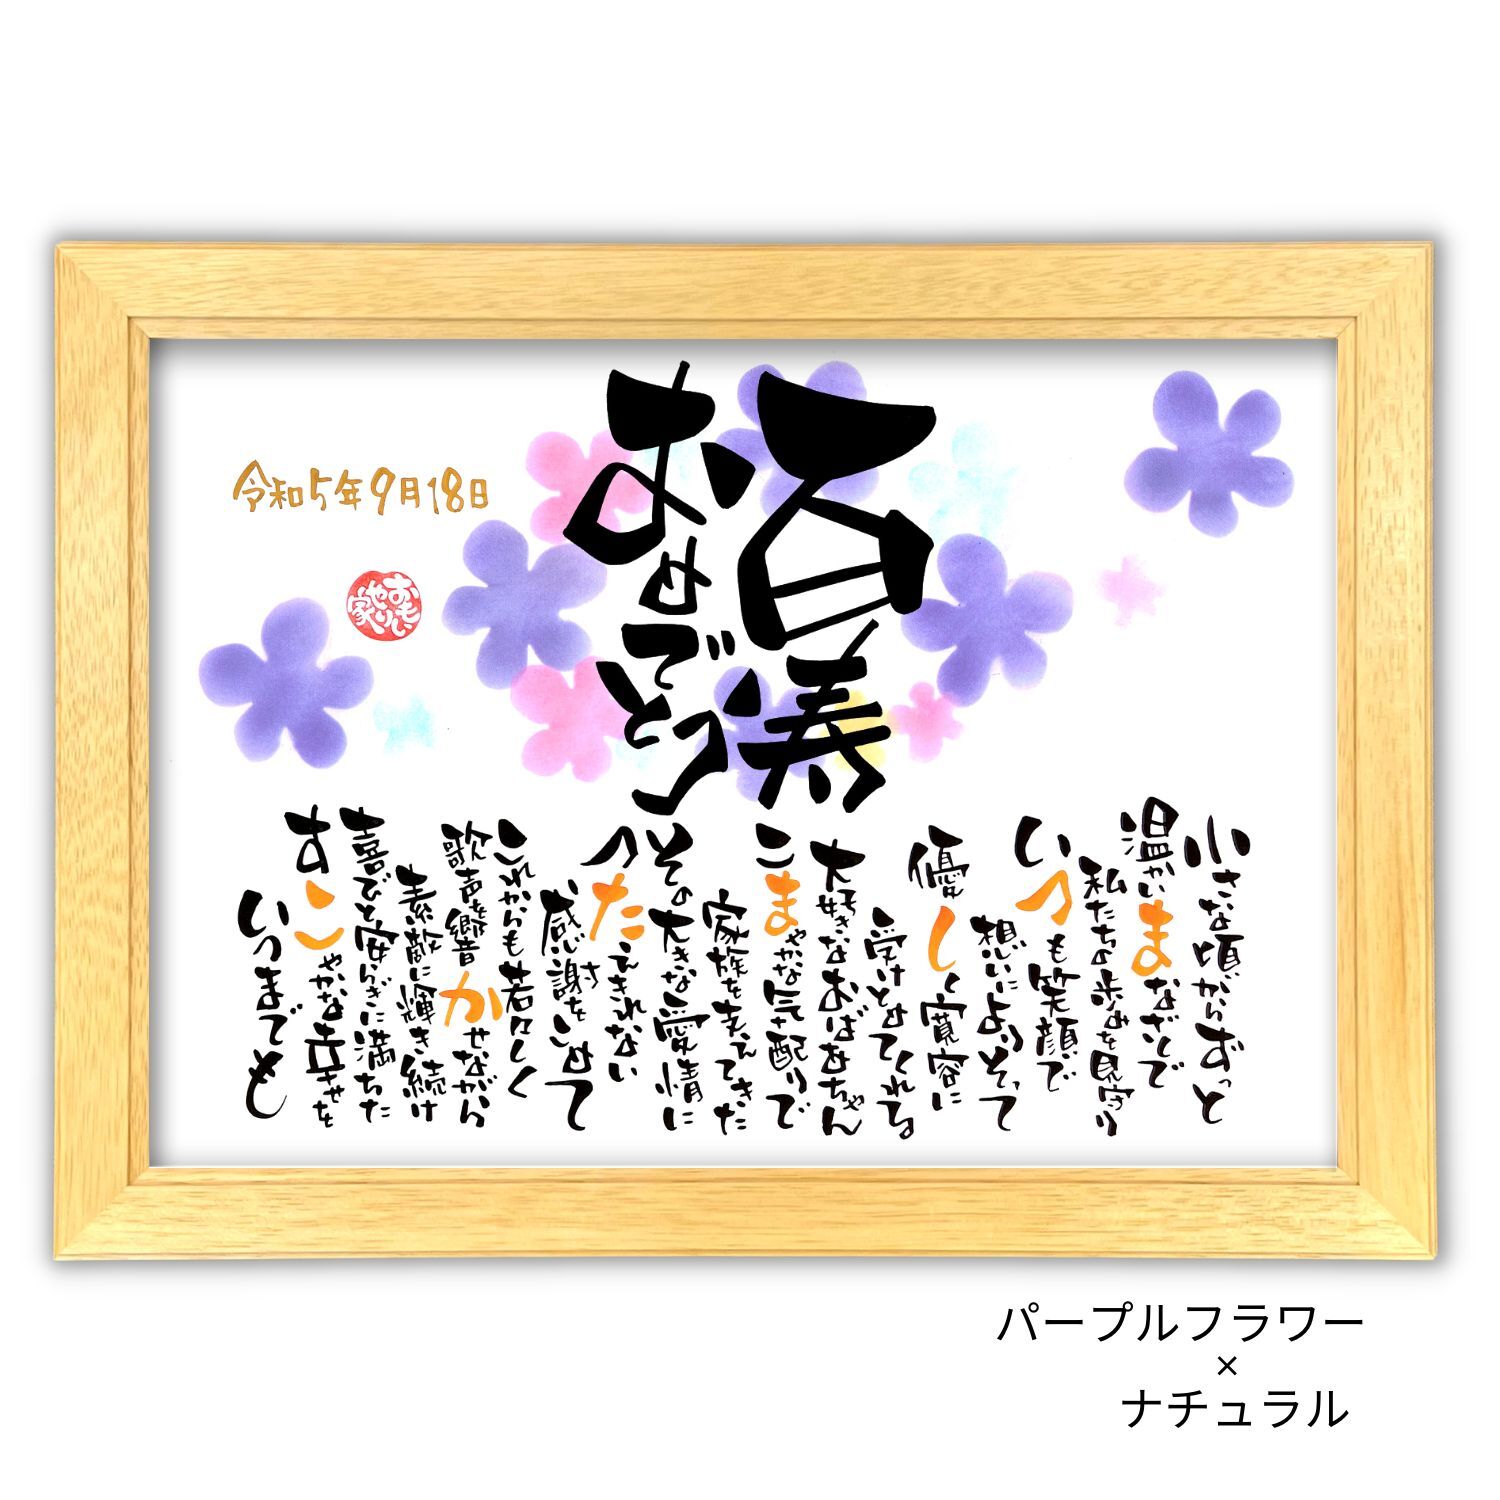 百寿
おめでとう
令和5年9月18日
おもい
やり
家
小さな頃からずっと
温かいまなざしで
私たちの歩みを見守り
いつも笑顔で
想いによりそって
優しく寛容に
受けとめてくれる
大好きなおばあちゃん
こまやかな気配りで
家族を支えてきた
その大きな愛情に
つたえきれない
感謝をこめて
これからも若々しく
歌声を響かせながら
素敵に輝き続け
喜びと安らぎに満ちた
すこやかな幸せを
いつまでも
パープルフラワー
×
ナチュラル